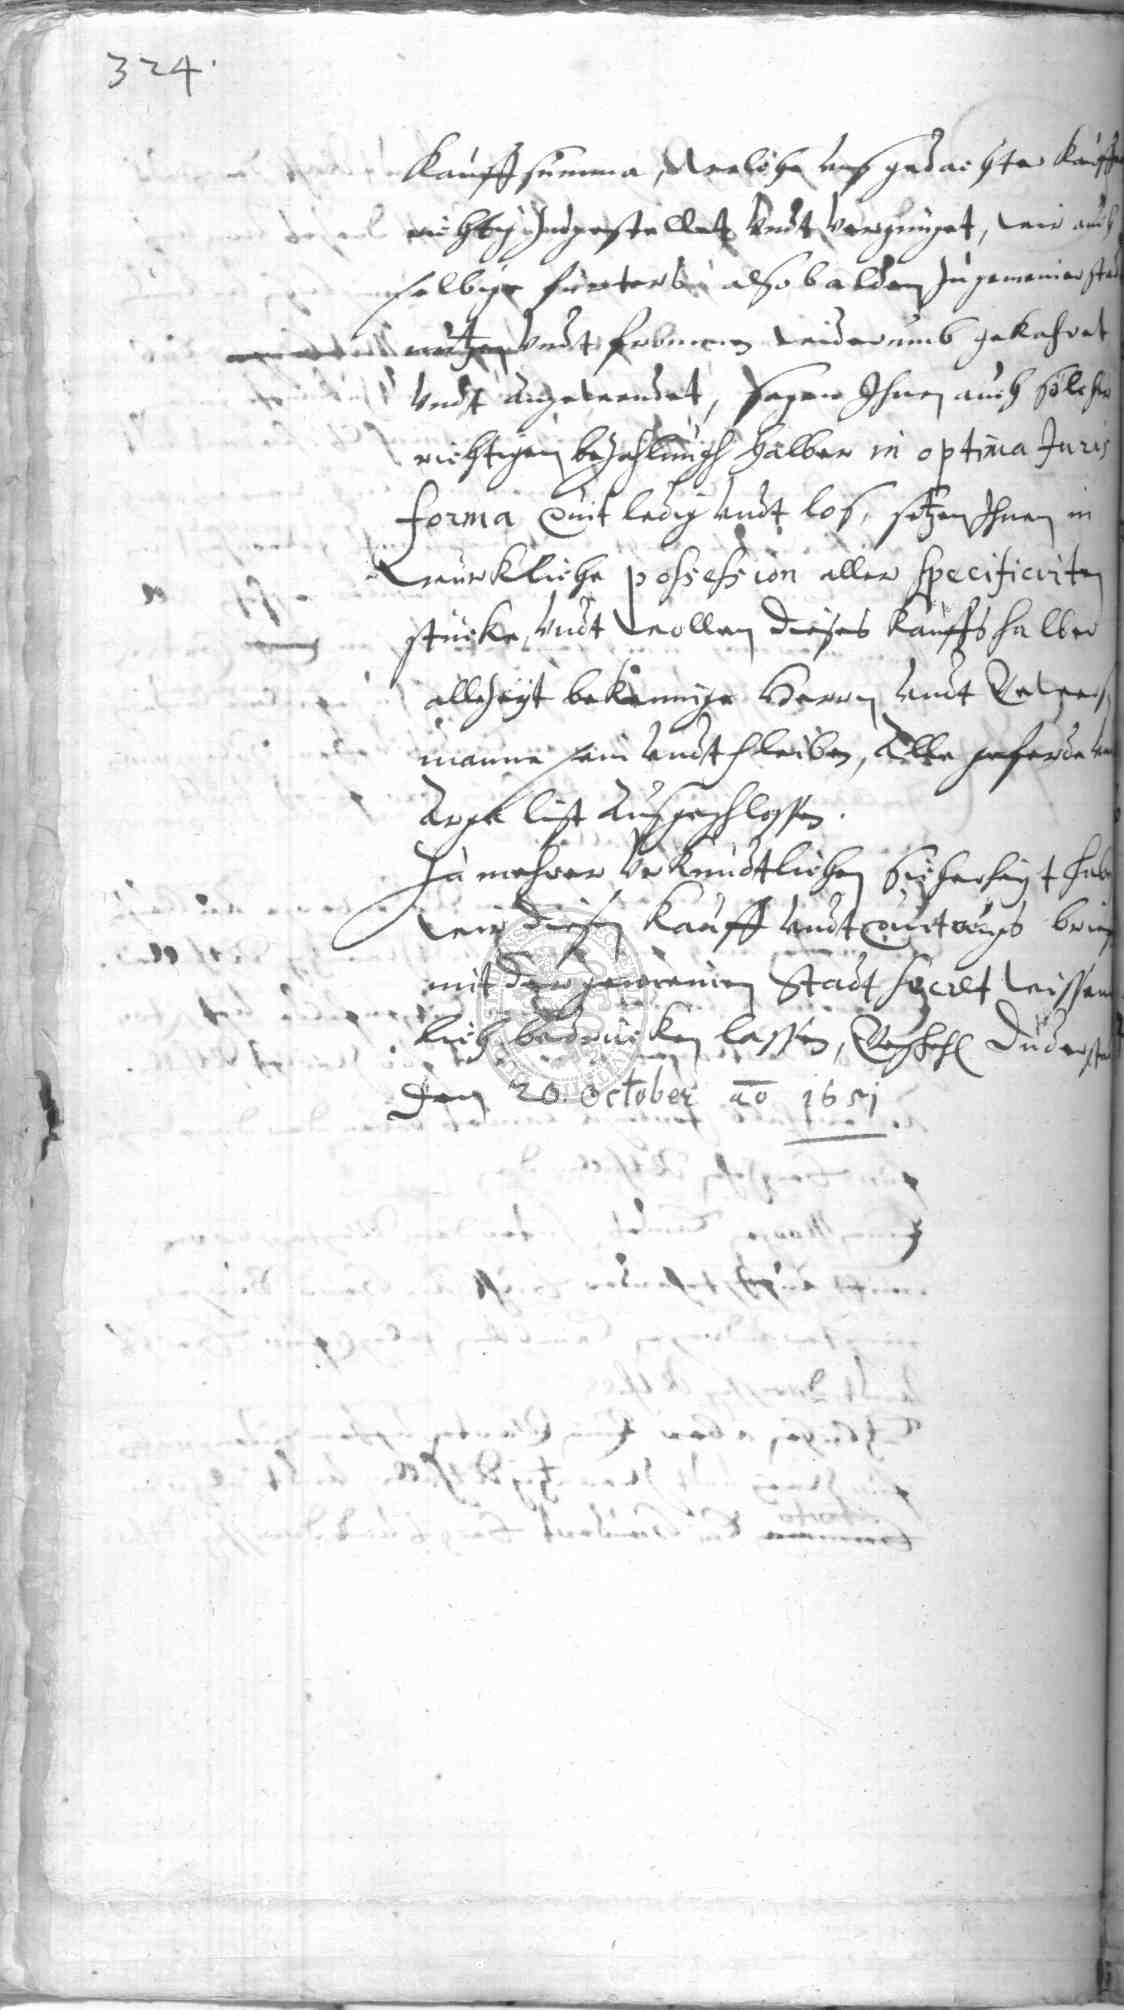 324.
Kauffsumma, Welche unß gedachter Kauffer
richtig zugestellet undt vergnüget, wir auch
selbige fürters alsobalden zu gemeiner stadt
nutzen undt frommen wiederumb gekehret
undt angewendet, sagen Ihnen auch solcher
richtigen bezahlungh halber in optima Juris
forma quit ledig undt loß, setzen Ihnen in
würkliche possession aller specificirten
stücke, undt wollen dieses Kauffs halber
allezeit bekennige Herrn undt Gewehrs
manne sein undt bleiben, Alle geferde und
Arge list außgeschlossen.
Zu mehrer Uhrkundtlichen Sicherheit haben
wir diesen Kauff undt quitungs brieff
mit der gemeinen Stadt Secret wissent
lich bedrucken lassen, Geschehen Duderstadt
den 20. October ao 1651